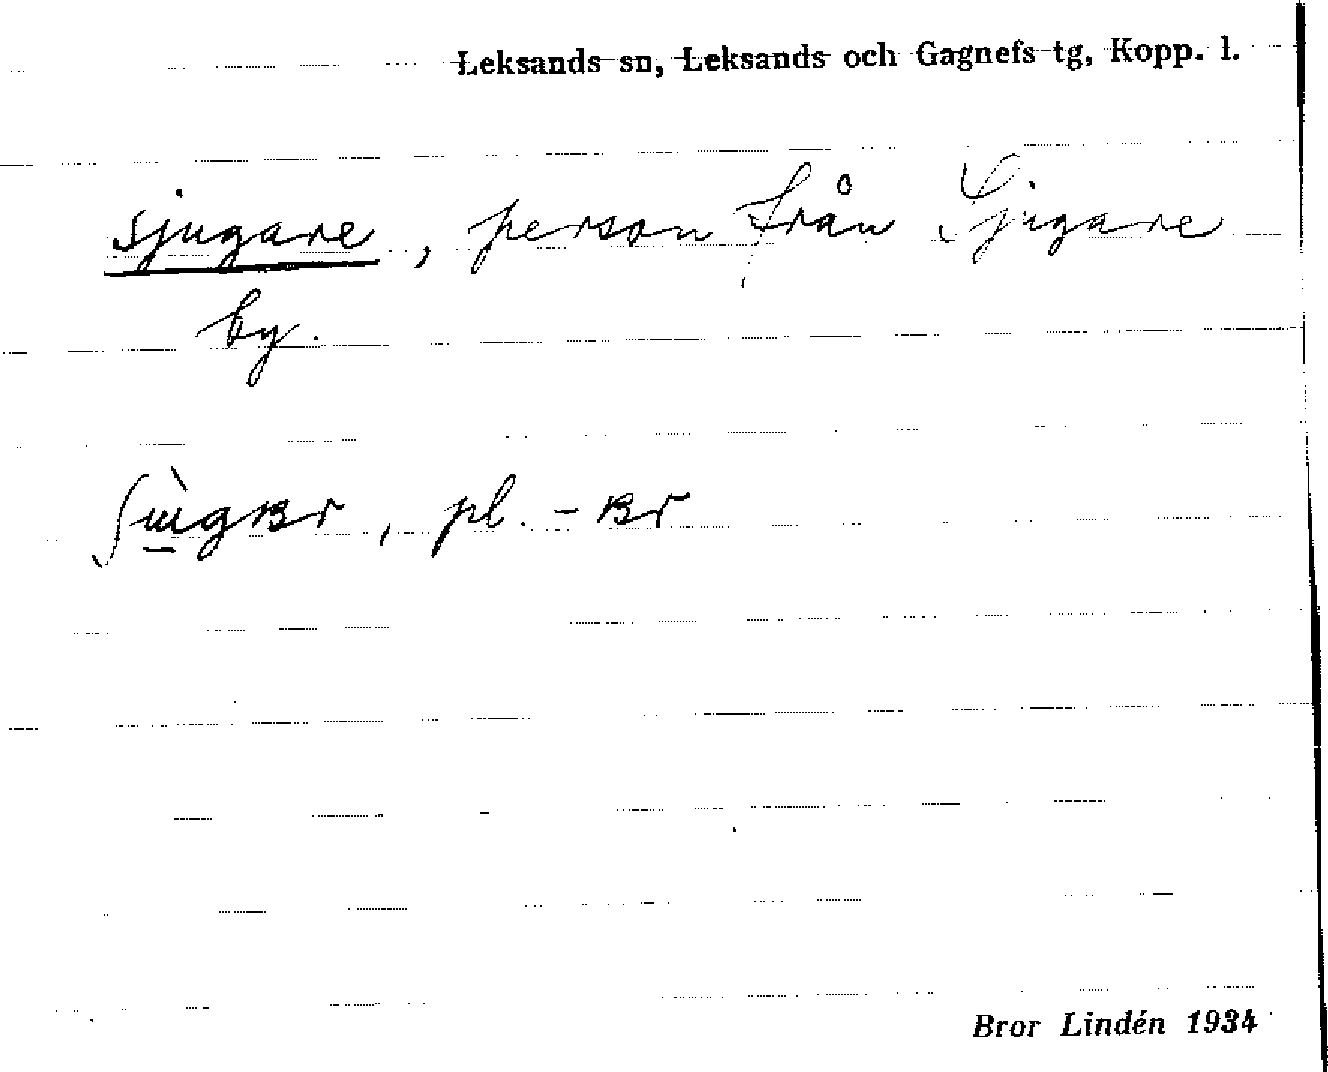 Leksands sn, Leksands och Gagnefs tg, Kopp. l.
sjugare, person från Sjugare
by.
ʃɯ̀gɐr, pl. -ɐr
Bror Lindén 1934